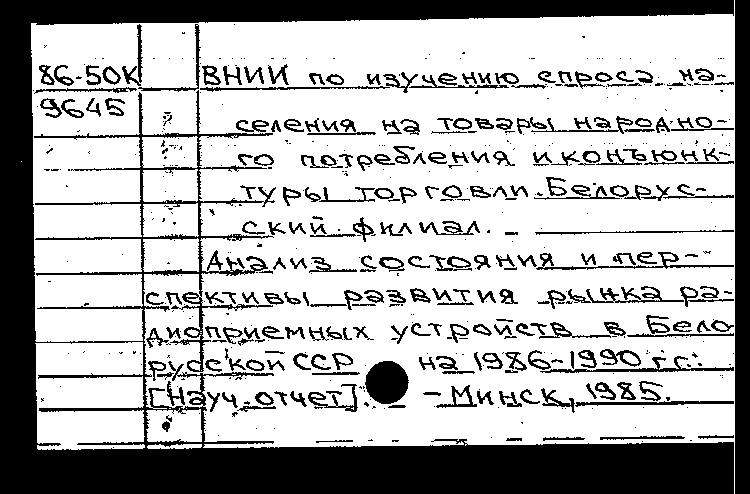 86-50К ВНИИ по изучению спроса на-
9645 селения на товары народно-
го потребления и конъюнк-
туры торговли. Белорус-
ский филиал. –
Анализ состояния и пер-
спективы развития рынка ра-
диоприемных устройств в Бело
русской ССР на 1986-1990 гг.:
[Науч. отчет]. – Минск, 1985.